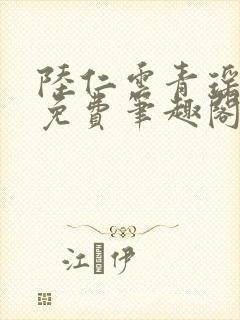 陸仁雲青瑶
免費筆趣閣
江 伊